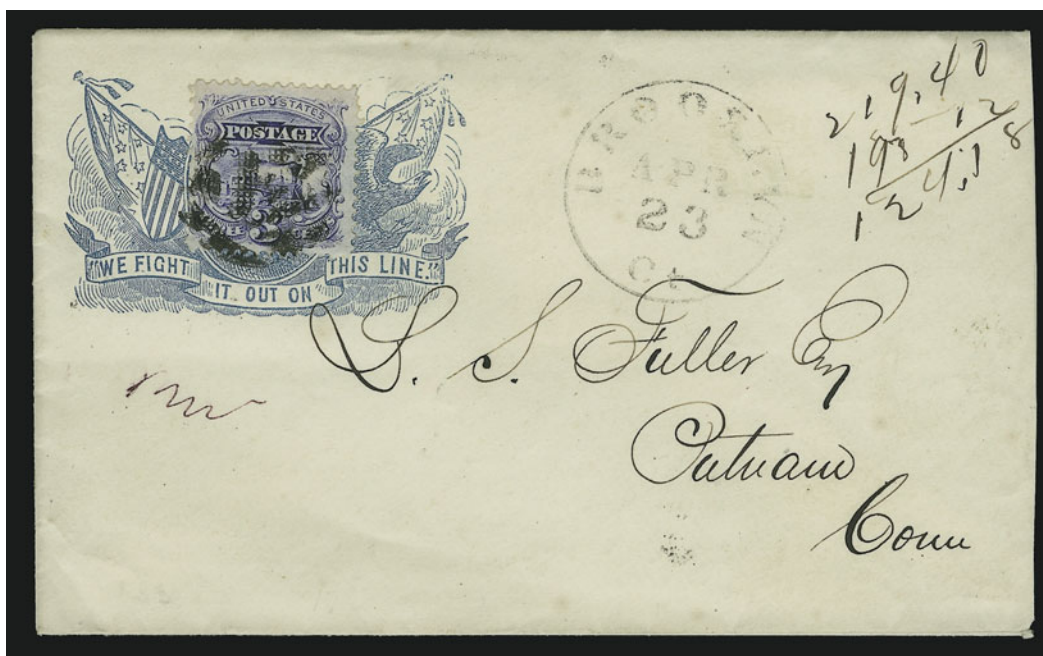 UNITED STATES
POSTAGE
WE FIGHT
IT OUT ON
THIS LINE.
BROOKLYN
APR
23
Ct
S. S. Fuller Esq
Putnam
Conn